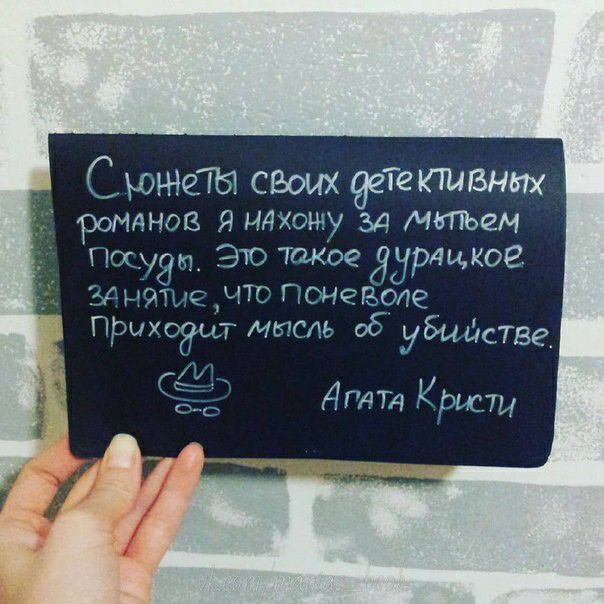 Сюжеты своих детективных
романов я нахожу за мытьем
посуды. Это такое дурацкое
занятие, что поневоле
приходит мысль об убийстве.
Агата Кристи